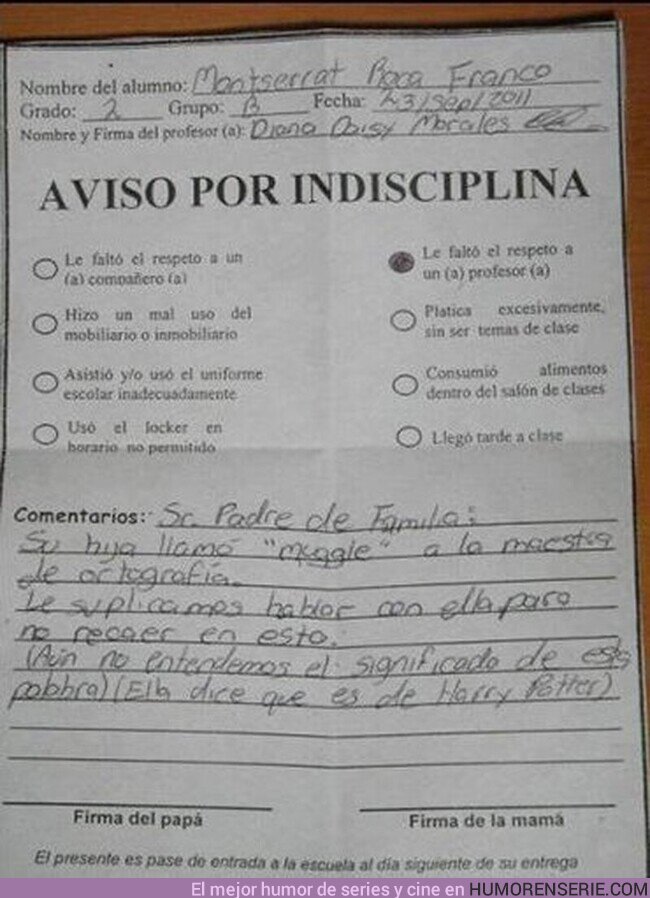 Nombre del alumno: Montserrat Roca Franco
Grado: 2 Grupo: B Fecha: 23/Sep/2011
Nombre y Firma del profesor (a): Diana Daisy Morales
AVISO POR INDISCIPLINA
Le faltó el respeto a un
(a) compañero (a)
Hizo un mal uso del
mobiliario o inmobiliario
Asistió y/o usó el uniforme
escolar inadecuadamente
Usó el locker en
horario no permitido
Le faltó el respeto a
un (a) profesor (a)
Platica excesivamente,
sin ser temas de clase
Consumió alimentos
dentro del salón de clases
Llegó tarde a clase
Comentarios: Sr. Padre de Familia:
Su hija llamó "muggle" a la maestra
de ortografía.
Le suplicamos hablar con ella para
no recaer en esto.
(Aún no entendemos el significado de esta
palabra) (Ella dice que es de Harry Potter)
Firma del papá
Firma de la mamá
El presente es pase de entrada a la escuela al día siguiente de su entrega
El mejor humor de series y cine en HUMORENSERIE.COM